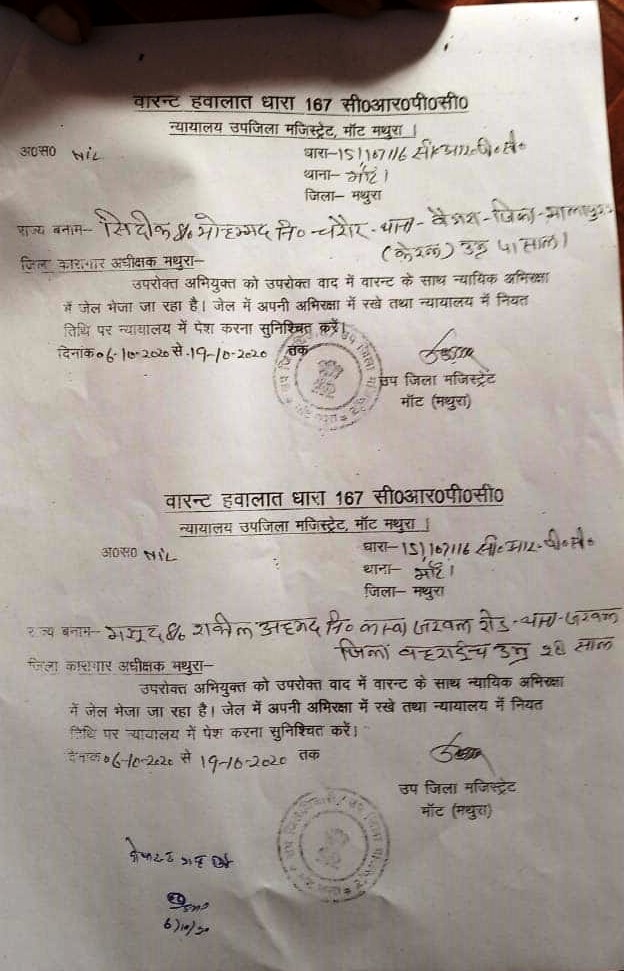 वारन्ट हवालात धारा 167 सी0आर0पी0सी0
न्यायालय उपजिला मजिस्ट्रेट, मॉट मथुरा ।
अ0स0 NIL धारा- 151/107/116 सी०आर०पी०सी०
थाना- मांट ।
जिला- मथुरा
राज्य बनाम- सिद्दीक S/o मोहम्मद नि० थाना जिला
(केरल) उम्र 41 साल ।
जिला कारागार अधीक्षक मथुरा-
उपरोक्त अभियुक्त को उपरोक्त वाद में वारन्ट के साथ न्यायिक अभिरक्षा
में जेल भेजा जा रहा है। जेल में अपनी अभिरक्षा में रखे तथा न्यायालय में नियत
तिथि पर न्यायालय में पेश करना सुनिश्चित करें।
दिनांक 06-10-2020 से 19-10-2020 तक
उप जिला मजिस्ट्रेट
मॉट (मथुरा)
वारन्ट हवालात धारा 167 सी0आर0पी0सी0
न्यायालय उपजिला मजिस्ट्रेट, मॉट मथुरा ।
अ0स0 NIL धारा- 151/107/116 सी०आर०पी०सी०
थाना- मांट ।
जिला- मथुरा
राज्य बनाम- मसूद S/o शकील अहमद नि० कस्बा जरवल रोड थाना जरवल
जिला बहराईच उम्र 28 साल
जिला कारागार अधीक्षक मथुरा-
उपरोक्त अभियुक्त को उपरोक्त वाद में वारन्ट के साथ न्यायिक अभिरक्षा
में जेल भेजा जा रहा है। जेल में अपनी अभिरक्षा में रखे तथा न्यायालय में नियत
तिथि पर न्यायालय में पेश करना सुनिश्चित करें।
दिनांक 06-10-2020 से 19-10-2020 तक
उप जिला मजिस्ट्रेट
मॉट (मथुरा)
6/10/20